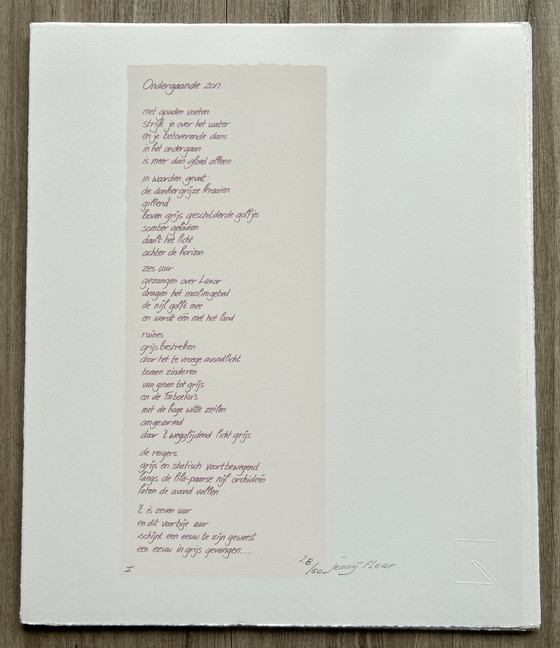 Ondergaande zon
met gouden voeten
strijk je over het water
en je betoverende dans
in het ondergaan
is meer dan gloed alleen
in woorden gevat:
de donkergrijze kraaien
gillend
boven grijs geschilderde golfjes
somber geladen
daalt het licht
achter de horizon
zes uur
gezangen over Luxor
dragen het moslimgebed
de nijl golft mee
en wordt één met het land
ruïnes
grijs bestreken
door het te vroege avondlicht
bomen zinderen
van groen tot grijs
en de Taboeka's
met de hoge witte zeilen
omgevormd
door 't wegglijdend licht grijs
de reigers
grijs en statisch voortbewegend
langs de lila-paarse nijl orchideeën
laten de avond vallen
't is zeven uur
en dit voorbije uur
schijnt een eeuw te zijn geweest
een eeuw in grijs gevangen....
I
28/50 Jenny Fleur